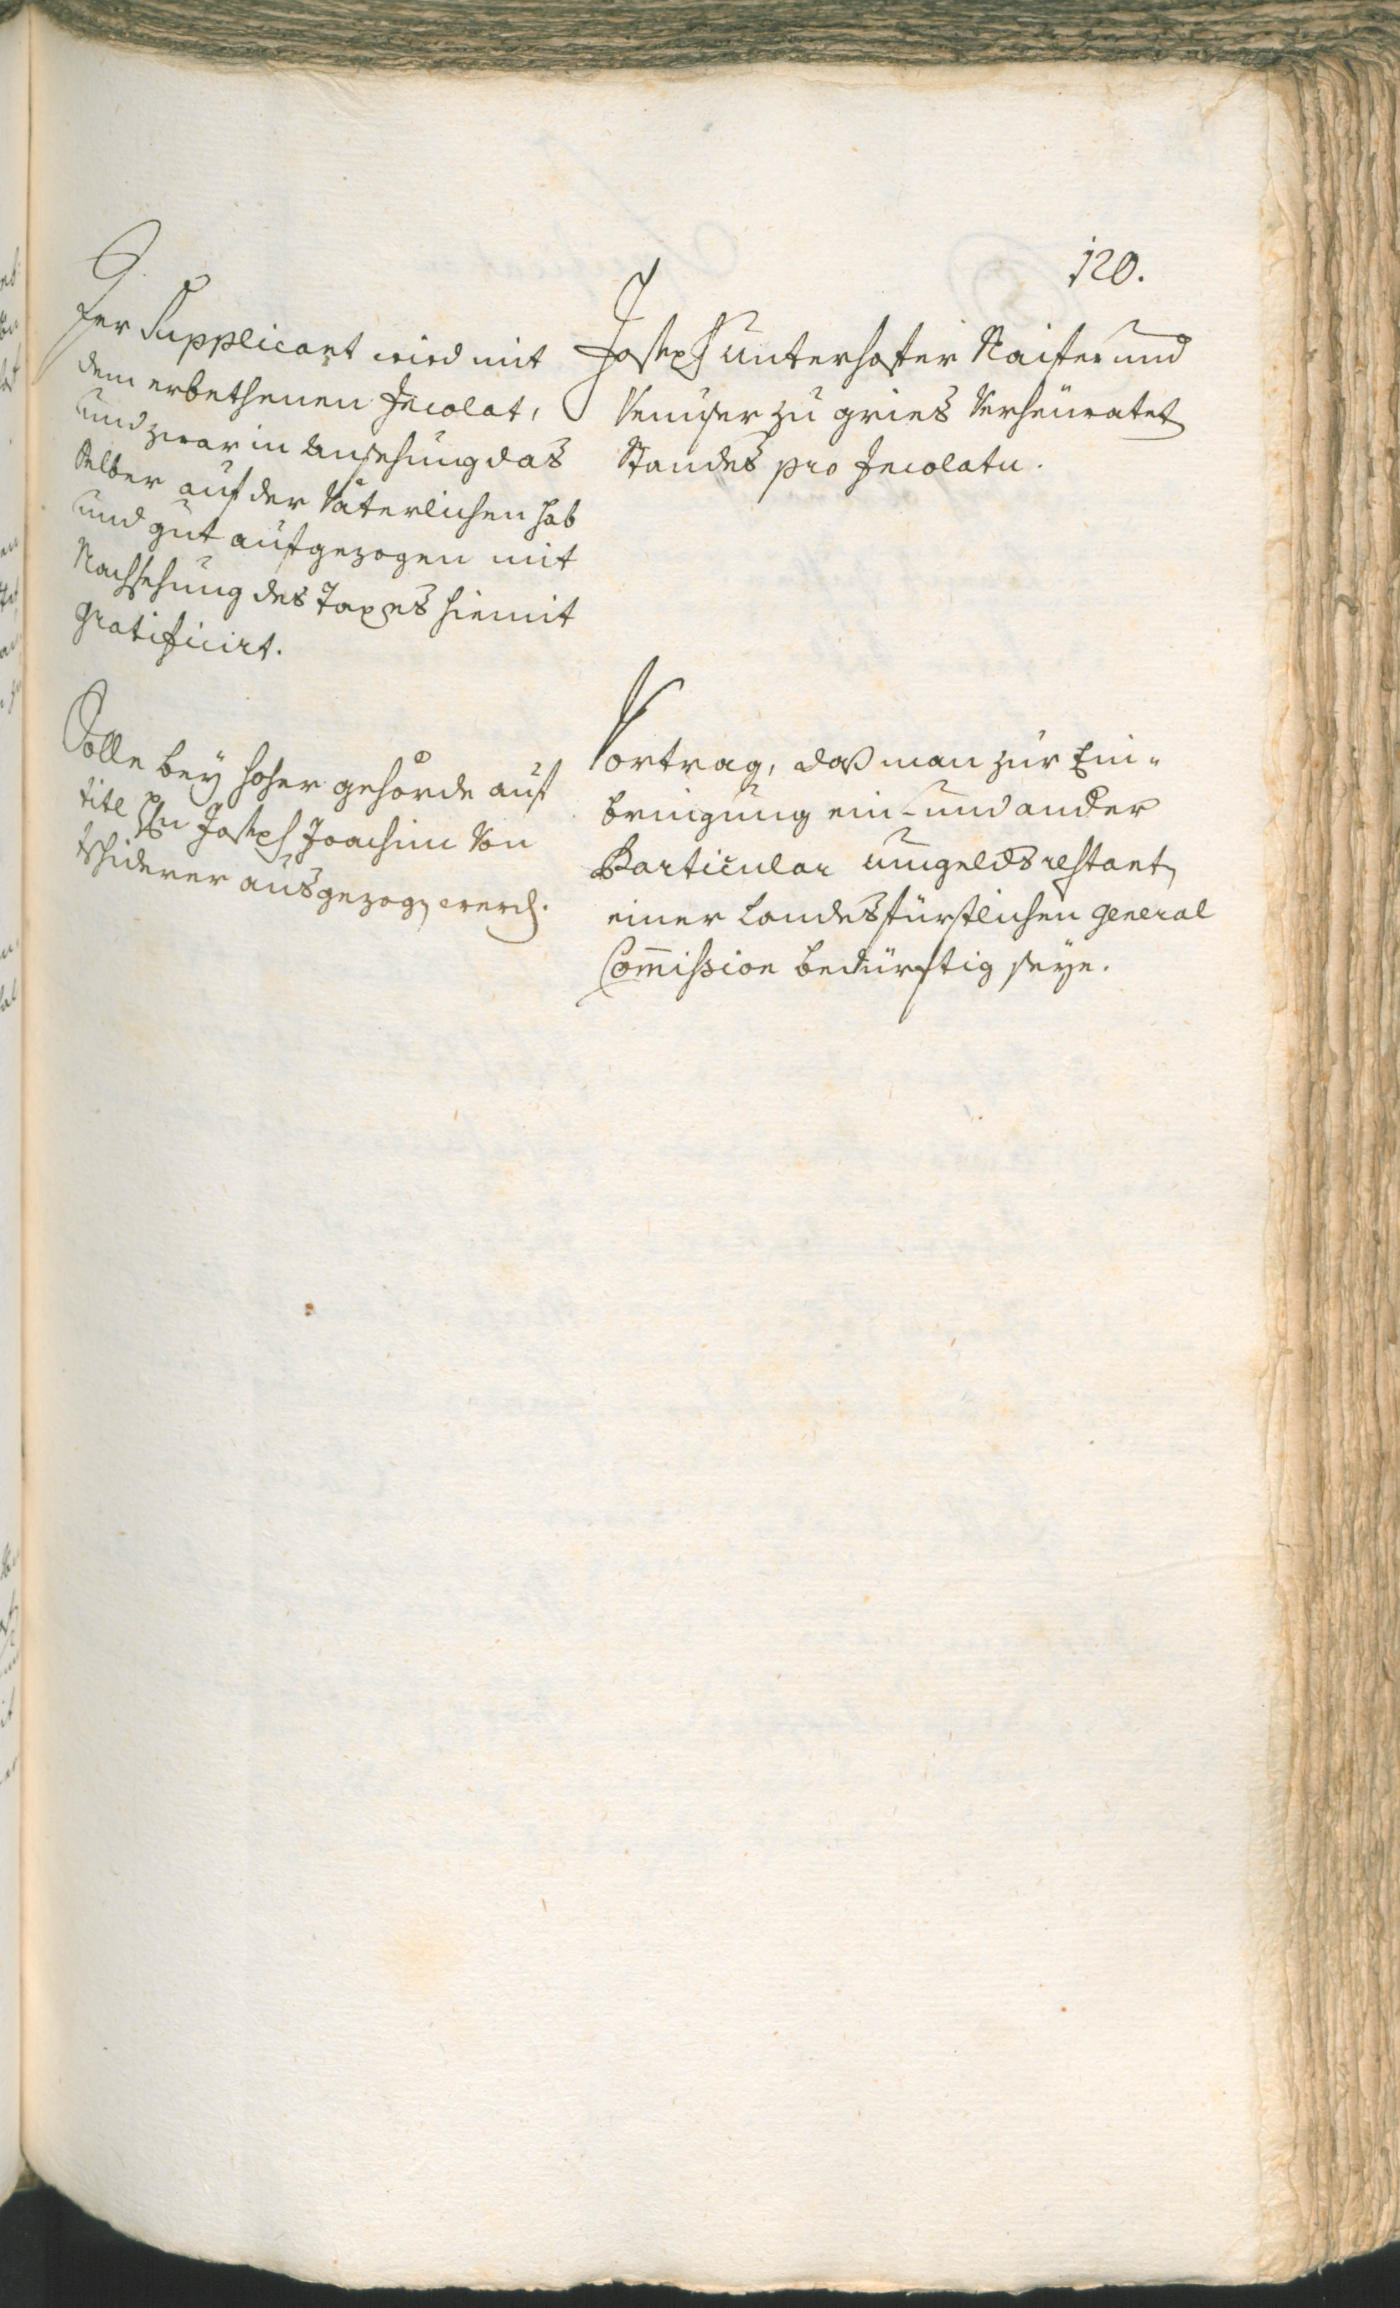 120.
Joseph Unterhofer Raifer und
Venuser zu gries Verheuratet
Standes pro Incolatu.
Der Supplicant wird mit
dem erbethenen Incolat,
und zwar in Ansehung das
Selber auf der Väterlichen hab
und gut auferzogen mit
Nachsehung des Taxes hiemit
gratificirt.
Vortrag, daß man zur Ein-
bringung ein- und ander
Particular umgelds restant
einer Landesfürstlichen General
Commission bedürftig seye.
Solle bey hoher gehörde auf
titl Hn Joseph Joachim Von
Tschiderer ausgezogen werden.